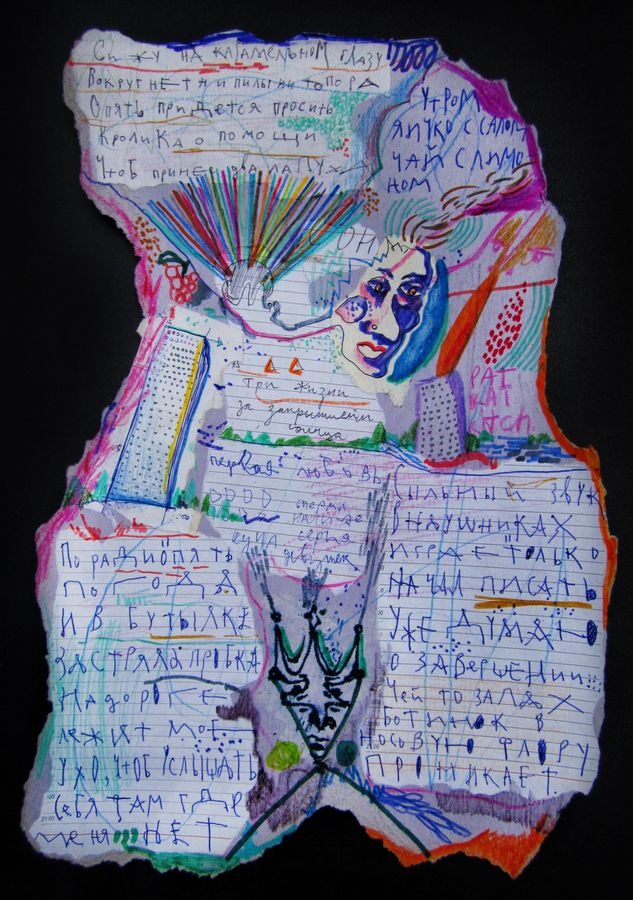 Сижу на карамельном глазу
Вокруг нет ни пилы ни топора
Опять придется просить
Кролика о помощи
Чтоб принес два лапуха
Утром
яичко с салом
чай с лимо
ном
Три жизни
за
яйца
первая любовь
куча серия
девушек
По радио опять
погода
и в бутылке
застряла пробка
на дороге
лежит мое
ухо, чтоб услышать
себя там где
меня нет
21:00
Сыльный звук
в наушниках
играет только
начал писать
уже думаю
о завершении
чей то запах
ботинок в
носовую флору
проникает.